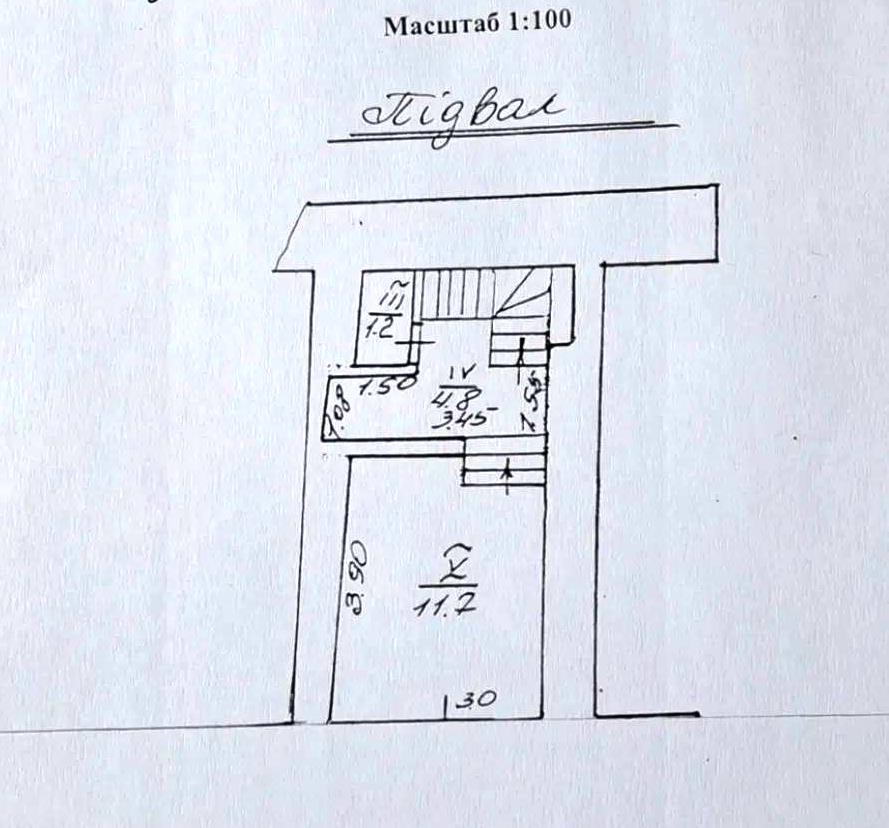 Масштаб 1:100
Підвал
III
1.2
1.50
IV
4.8
3.45
1.08
V
11.7
3.90
3.0